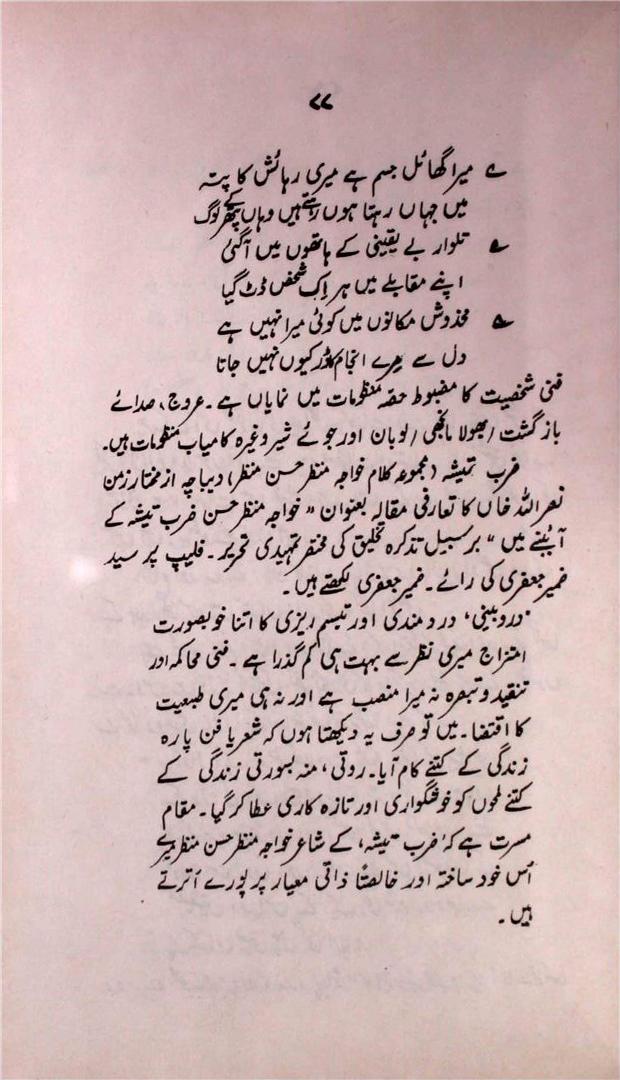 ۷۷
؎ میرا گھائل جسم ہے میری رہائش کا پتہ
میں جہاں رہتا ہوں رہتے ہیں وہاں پتھر کے لوگ
؎ تلوار بے یقینی کے ہاتھوں میں آگئی
اپنے مقابلے میں ہر اِک شخص ڈٹ گیا
؎ مخدوش مکانوں میں کوئی میرا نہیں ہے
دل سے مرے انجام کا ڈر کیوں نہیں جاتا
فنی شخصیت کا مضبوط حصّہ منظومات میں نمایاں ہے۔ عروج، صدائے
بازگشت، بھولا مانجھی، لوبان اور جوئے شیر وغیرہ کامیاب منظومات ہیں۔
ضربِ تیشہ (مجموعہ کلام خواجہ منظر حسن منظر) دیباچہ از مختار زمن
نصر اللہ خاں کا تعارفی مقالہ بعنوان " خواجہ منظر حسن ضربِ تیشہ کے
آئینے میں " برسبیلِ تذکرہ تخلیق کی مختصر تمہیدی تحریر۔ فلیپ پر سید
ضمیر جعفری کی رائے۔ ضمیر جعفری لکھتے ہیں۔
"دروں بینی، دردمندی اور تبسم ریزی کا اتنا خوبصورت
امتزاج میری نظر سے بہت ہی کم گذرا ہے۔ فنی محاکمہ اور
تنقید و تبصرہ نہ میرا منصب ہے اور نہ ہی میری طبیعت
کا اقتضا۔ میں تو صرف یہ دیکھتا ہوں کہ شعر یا فن پارہ
زندگی کے کتنے کام آیا۔ روتی، منہ بسورتی زندگی کے
کتنے لمحوں کو خوشگواری اور تازہ کاری عطا کر گیا۔ مقام
مسرت ہے کہ 'ضربِ تیشہ' کے شاعر خواجہ منظر حسن منظر میرے
اُس خود ساختہ اور خالصتاً ذاتی معیار پر پورے اُترتے
ہیں۔